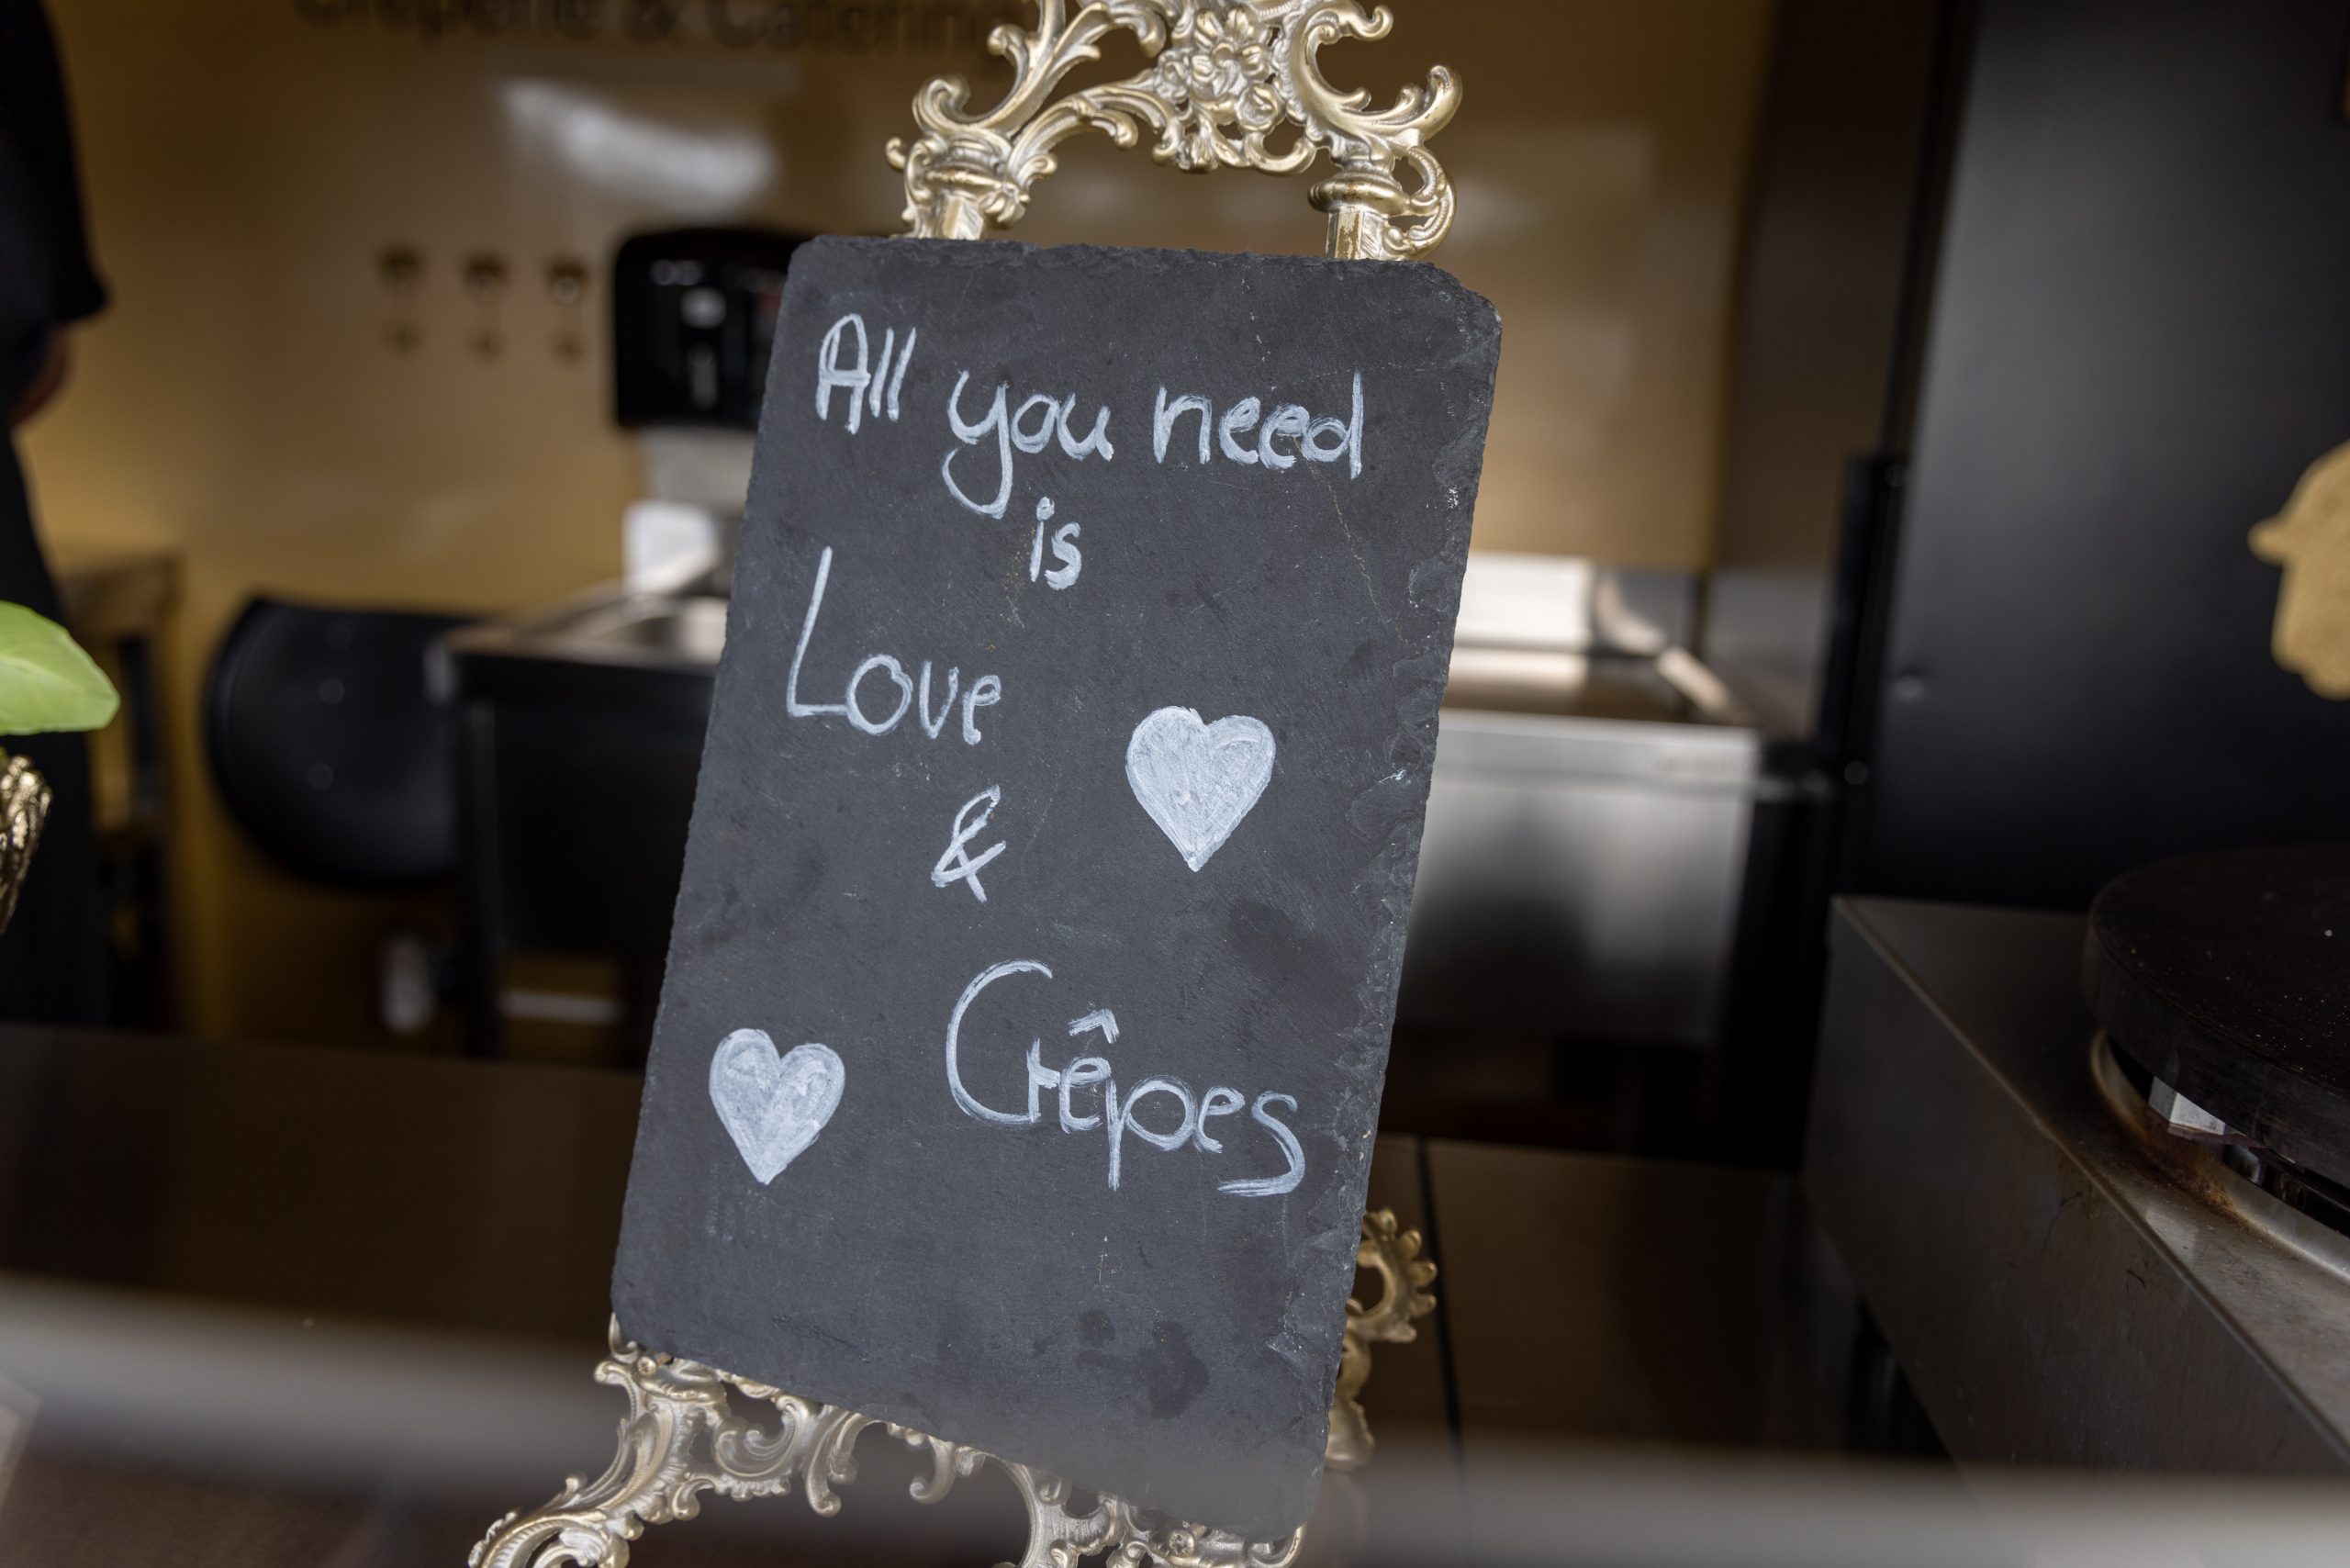 Crêperie & Catering
All you need
is
Love
&
Crêpes